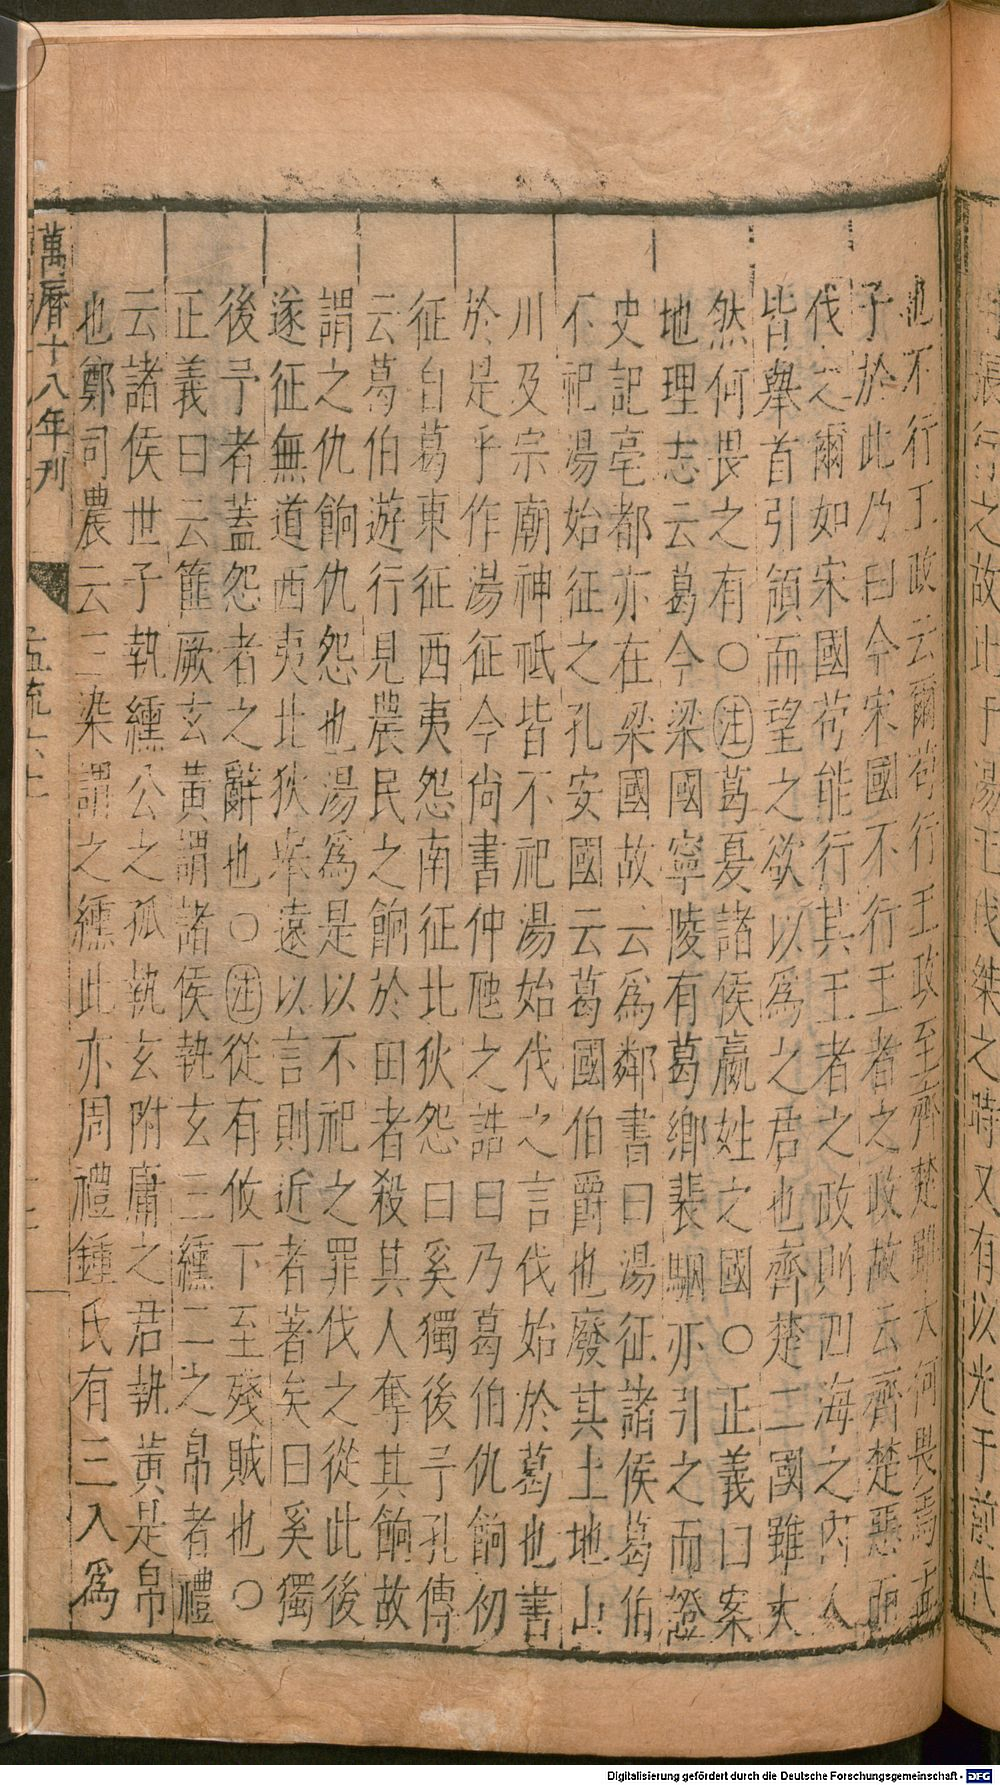 也不行王政云爾苟行王政至齊楚雖大何畏焉孟
子於此乃曰今宋國不行王者之政故云齊楚惡而
伐之爾如宋國苟能行其王者之政則四海之內人
皆舉首引領而望之欲以為之君也齊楚二國雖大
然何畏之有〇注葛夏諸侯嬴姓之國〇正義曰案
地理志云葛今梁國寧陵有葛鄉裴駰亦引之而證
史記亳都亦在梁國故云為鄰書曰湯征諸侯葛伯
不祀湯始征之孔安國云葛國伯爵也廢其土地山
川及宗廟神祗皆不祀湯始伐之言伐始於葛也書
於是乎作湯征今尚書仲虺之誥曰乃葛伯仇餉初
征自葛東征西夷怨南征北狄怨曰奚獨後予孔傳
云葛伯遊行見農民之餉於田者殺其人奪其餉故
謂之仇餉仇怨也湯為是以不祀之罪伐之從此後
遂征無道西夷北狄舉遠以言則近者著矣曰奚獨
後予者蓋怨者之辭也〇注從有攸下至殘賊也〇
正義曰云篚厥玄黃謂諸侯執玄三纁二之帛者禮
云諸侯世子執纁公之孤執玄附庸之君執黃是帛
也鄭司農云三染謂之纁此亦周禮鍾氏有三入為
萬曆十八年刊
孟疏六上
之故此于湯
伐桀之時又有以光于前代
Digitalisierung gefördert durch die Deutsche Forschungsgemeinschaft - DFG